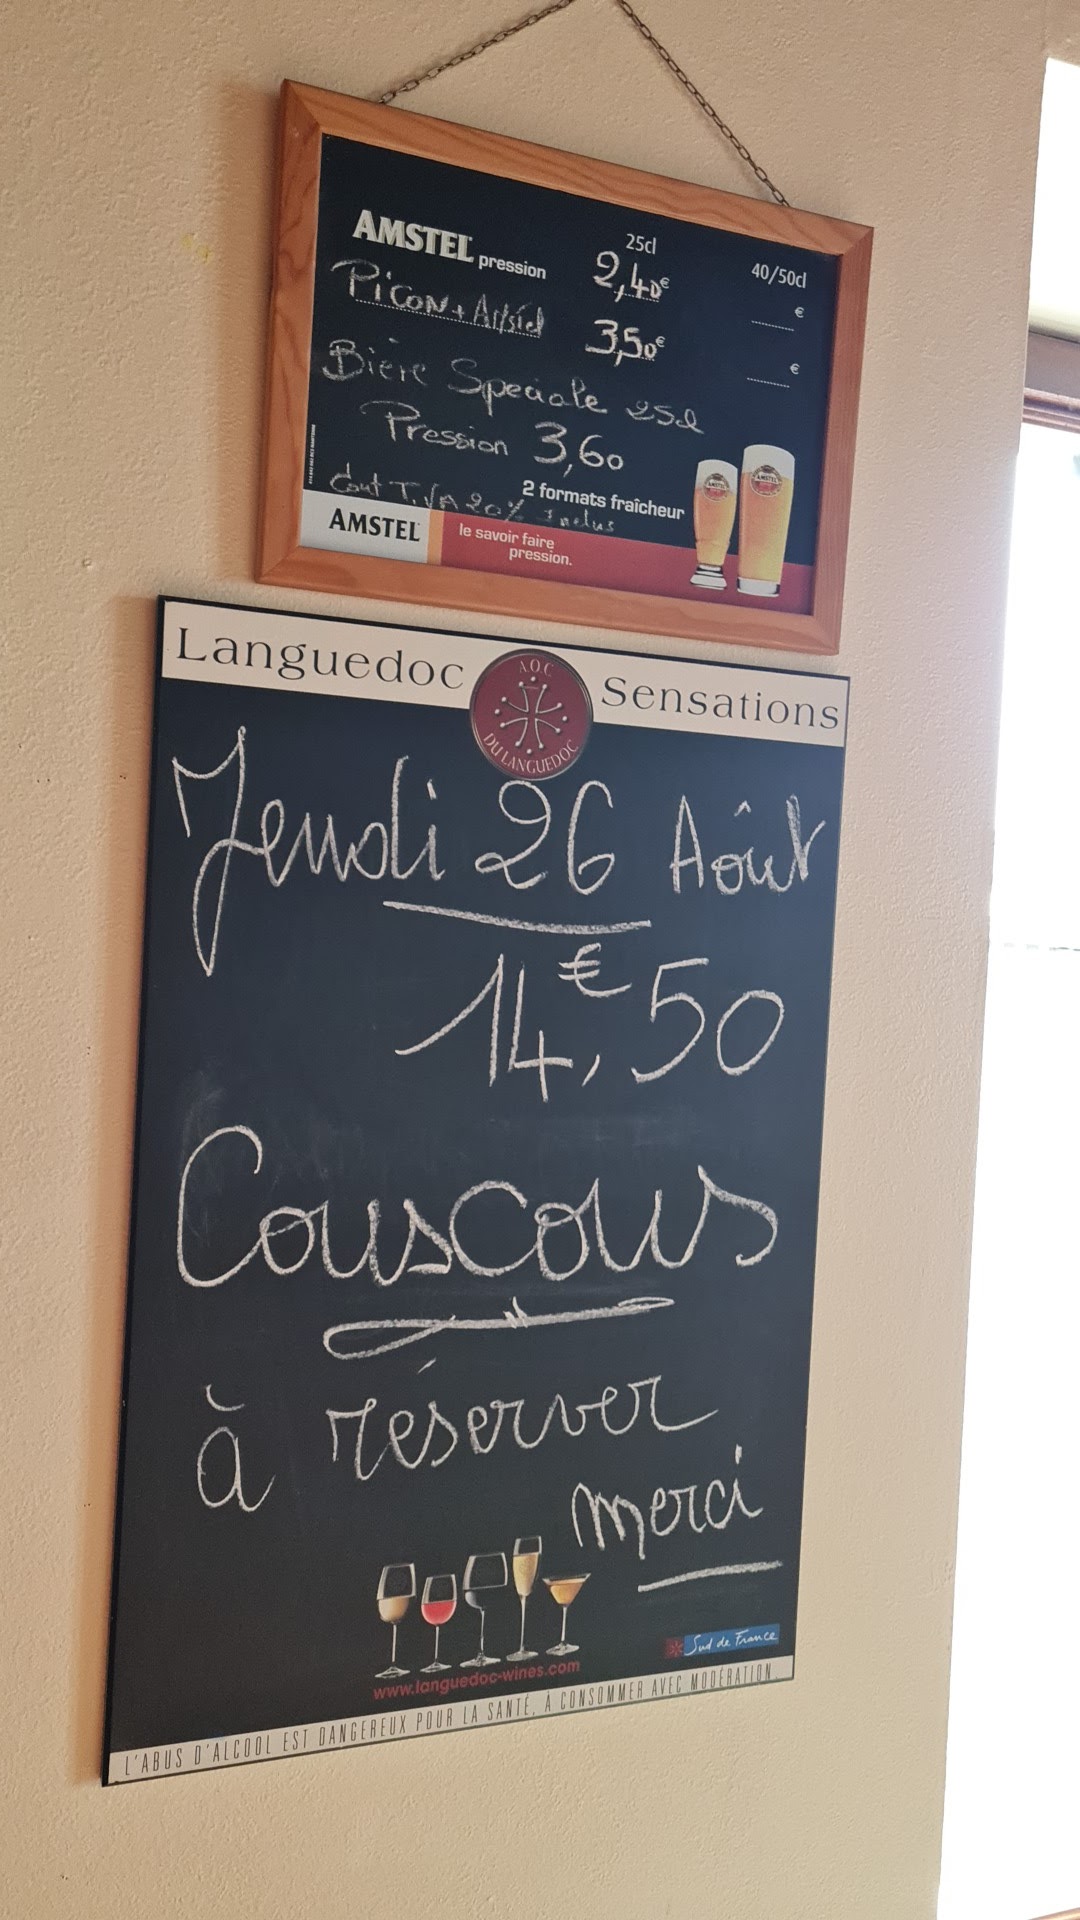 25cl 40/50cl
AMSTEL pression 2,40€ €
Picon + Amstel 3,50€ €
Bière Speciale 25cl
Pression 3,60
dont T.VA 20% Inclus
2 formats fraîcheur
AMSTEL le savoir faire
pression.
Languedoc Sensations
A.O.C
DU LANGUEDOC
Jeudi 26 Août
14€,50
Couscous
à réserver
merci
Sud de France
www.languedoc-wines.com
L'ABUS D'ALCOOL EST DANGEREUX POUR LA SANTÉ, À CONSOMMER AVEC MODÉRATION.